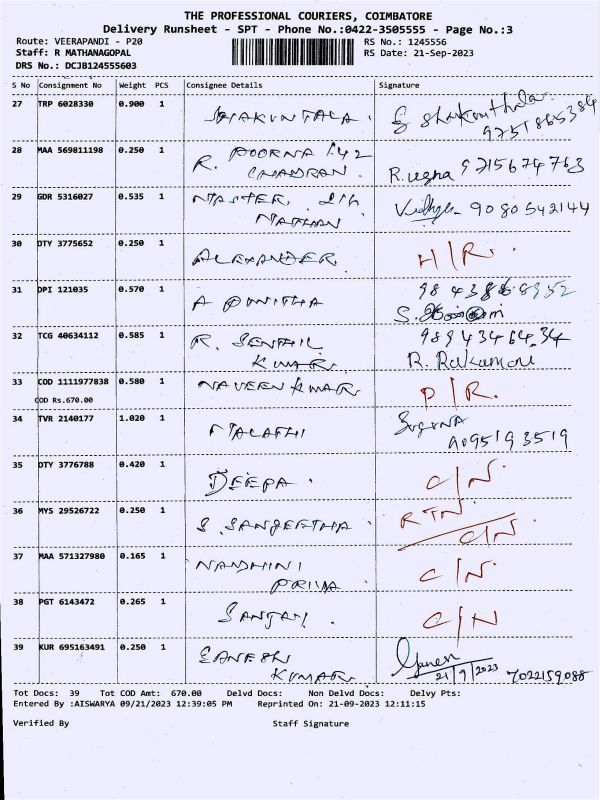 THE PROFESSIONAL COURIERS, COIMBATORE
Delivery Runsheet - SPT - Phone No.:0422-3505555 - Page No.:3
Route: VEERAPANDI - P20 RS No.: 1245556
Staff: R MATHANAGOPAL RS Date: 21-Sep-2023
DRS No.: DCJB124555603
S No Consignment No Weight PCS Consignee Details Signature
27 TRP 6028330 0.900 1 SHAKUNTALA. S Shakunthala
9751865384
28 MAA 569811198 0.250 1 R. POORNA
CHANDRAN. R. 9715674763
29 GDR 5316027 0.535 1 MASTER.
NATHAN Vidhya 9080542144
30 DTY 3775652 0.250 1 ALEXANDER. H/R.
31 DPI 121035 0.570 1 A PUNITHA
S.
32 TCG 40634112 0.585 1 R. SENTHIL 9894346434
KUMAR. R.
33 COD 1111977838 0.580 1 NAVEEN KUMAR P/R.
COD Rs.670.00
34 TVR 2140177 1.020 1 MALATHI Suguna
9095193519
35 DTY 3776788 0.420 1 DEEPA. C/N.
36 MYS 29526722 0.250 1 S. SANGEETHA. RTN
C/N.
37 MAA 571327980 0.165 1 NANDHINI
PRIYA. C/N.
38 PGT 6143472 0.265 1 SANJAY. C/N
39 KUR 695163491 0.250 1 GANESH Ganesh
KUMAR 21/9/2023 7022159088
Tot Docs: 39 Tot COD Amt: 670.00 Delvd Docs: Non Delvd Docs: Delvy Pts:
Entered By :AISWARYA 09/21/2023 12:39:05 PM Reprinted On: 21-09-2023 12:11:15
Verified By Staff Signature